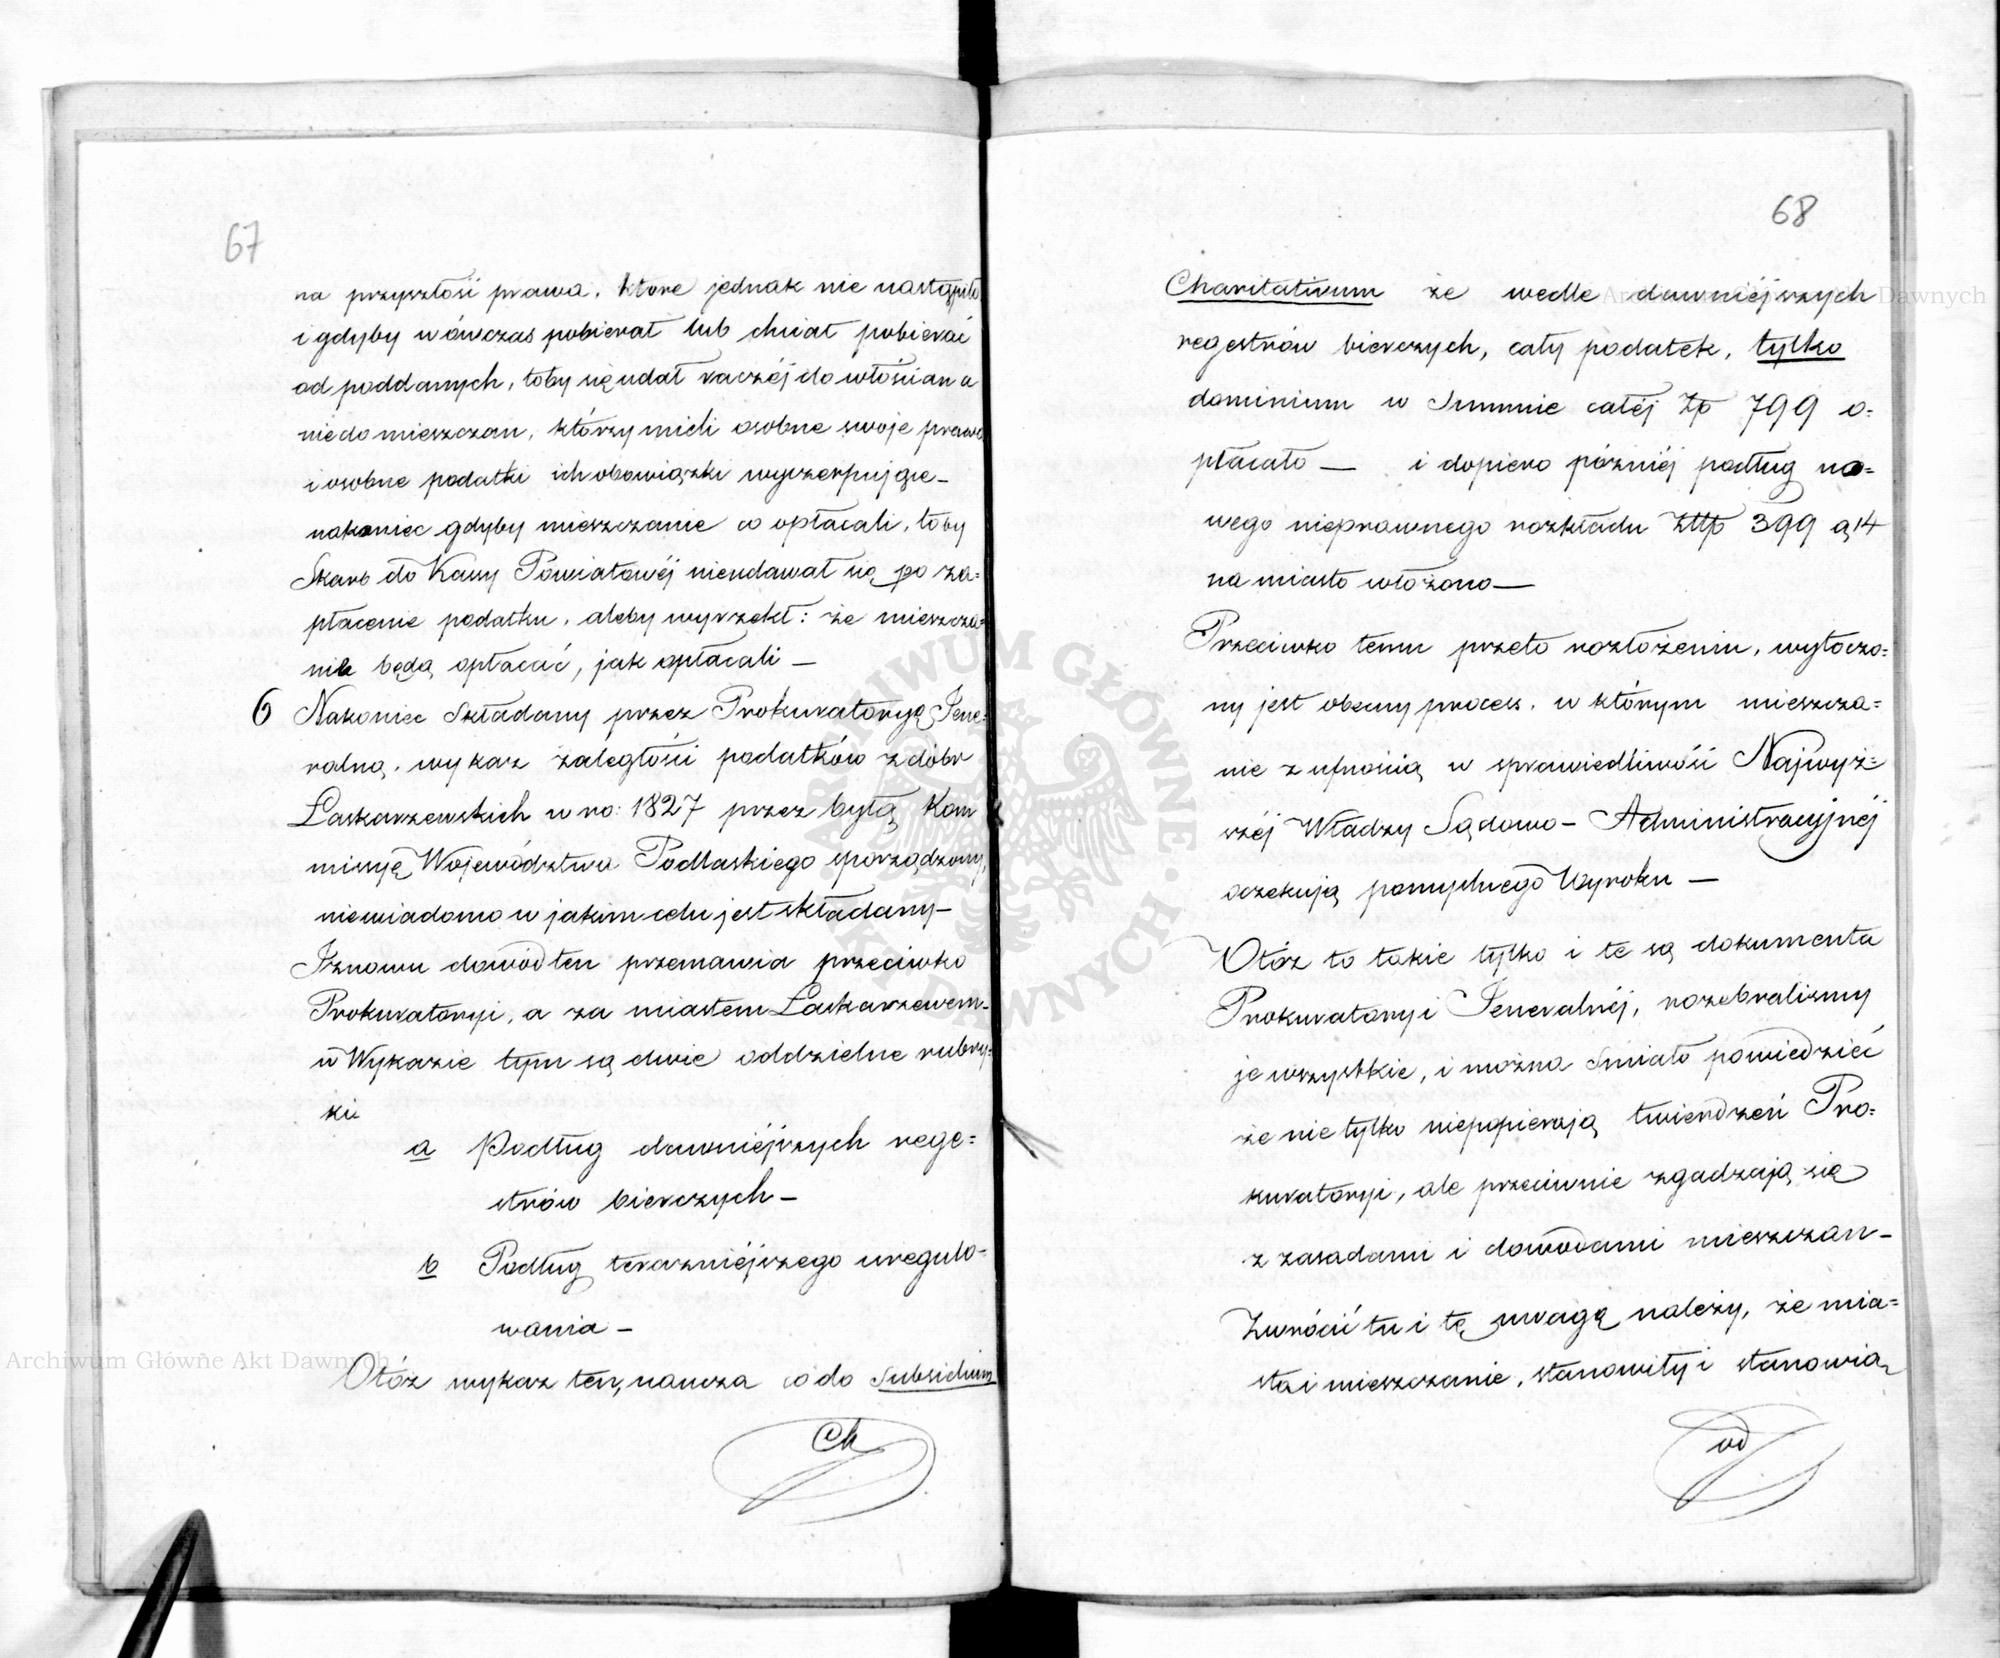 67
na przyszłość prawa, które jednak nie nastąpiło
i gdyby wówczas pobierał lub chciał pobierać
od poddanych, toby się udał raczéj do włościan a
nie do mieszczan, którzy mieli osobne swoje prawa
i osobne podatki ich obowiązki wyczerpujące —
nakoniec gdyby mieszczanie co opłacali, toby
Skarb do Kassy Powiatowéj nieudawał się po za=
płacenie podatku, aleby wyrzekł: że mieszcza=
nie będą opłacać, jak opłacali —
6 Nakoniec składany przez Prokuratoryą Jene=
ralną, wykaz zaległości podatków z dóbr
Łaskarzewskich w ro: 1827 przez byłą Kom
missyę Województwa Podlaskiego sporządzony,
niewiadomo w jakim celu jest składany —
I znowu dowód ten przemawia przeciwko
Prokuratoryi, a za miastem Łaskarzewem —
w Wykazie tym są dwie oddzielne rubry=
ki
a Podług dawniéjszych rege=
strów bierczych —
b Podług teraźniéjszego uregulo=
wania —
Otóż wykaz ten, naucza co do Subsidium
Ch
68
Charitativum że wedle dawniéjszych
regestrów bierczych, cały podatek, tylko
dominium w Summie całéj Zp 799 o=
płacało — i dopiero późniéj podług no=
wego nieprawnego rozkładu Złtp 399 g 14
na miasto włożono —
Przeciwko temu przeto rozłożeniu, wytoczo=
ny jest obecny proces, w którym mieszcza=
nie z ufnością w sprawiedliwość Najwyż=
széj Władzy Sądowo - Administracyjnéj
oczekują pomyślnego Wyroku —
Otóż to takie tylko i te są dokumenta
Prokuratoryi Jeneralnéj, rozebraliśmy
je wszystkie, i można śmiało powiedzieć
że nie tylko niepopierają twierdzeń Pro=
kuratoryi, ale przeciwnie zgadzają się
z zasadami i dowodami mieszczan —
Zwrócić tu i tę uwagę należy, że mia=
sta i mieszczanie, stanowiły i stanowią
od
Archiwum Główne Akt Dawnych
ARCHIWUM GŁÓWNE AKT DAWNYCH